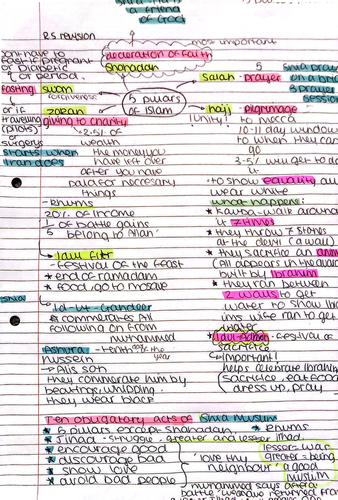 is a friend
of God
RS revision
most important
declaration of faith
Shahadah
you have to
fast if pregnant
or diabetic
or period.
fasting sawm
forgiveness
5 pillars
of Islam
Salah - prayer
5
Shia pray
on a bri
3 prayer
sessio
or if zakah
travelling giving to charity
(pilots) or
surgerys
2.5% of
wealth
starts when
Iran does
the money you
have left over
after you have
paid for necessary
things
hajj - pilgrimage
(unity) to mecca
10-11 day window
to when they can
go
3-5% will get to do
it
to show equality all
wear white
what happens:
* Kaaba - walk around
it 7 times
* they throw 7 stones
at the devil (a wall)
* they sacrifice an
(all appears in the
built by Ibrahim
* they ran between
2 hills to get
water to show
ims wife ran to get
water
- Khums
20% of income
1/5 of battle gains
belong to Allah
Id-ul-fitr
- festival of the feast
* end of ramadan
* food, go to mosque
Shia
Id-ul-Ghadeer
* commerates Ali
following on from
muhammed
Ashura - tenth of the year
hussein
-> Alis son
they commerate him by
beatings, whipping.
they wear black
Id-ul-Adha - festival of
sacrifice
important!
helps celebrate Ibrahim
sacrifice, eat food
dress up, pray
Ten obligatory acts of Shia Muslim
* 5 pillars except Shahadah, * Khums
* Jihad - struggle, greater and lesser jihad.
* encourage good
* discourage bad
* show love
* avoid bad people
'love thy
neighbour'
lesser = war
greater = being
a good
muslim
muhammed says after a
battle "weavve returned from